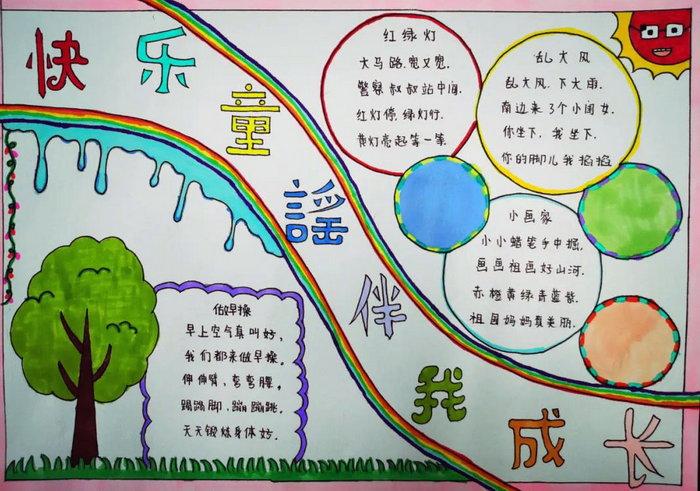 快乐童謡伴我成长
红绿灯
大马路宽又宽.
警察叔叔站中间.
红灯停.绿灯行.
黄灯亮起等一等.
乱大风
乱大风.下大雨.
南边来了个小闺女.
你坐下.我坐下.
你的脚儿我掐掐
小画家
小小蜡笔手中掘.
画画祖国好山河.
赤橙黄绿青蓝紫.
祖国妈妈真美丽.
做早操
早上空气真叫好,
我们都来做早操。
伸伸臂、弯弯腰。
踢踢脚、蹦蹦跳.
天天锻炼身体好.